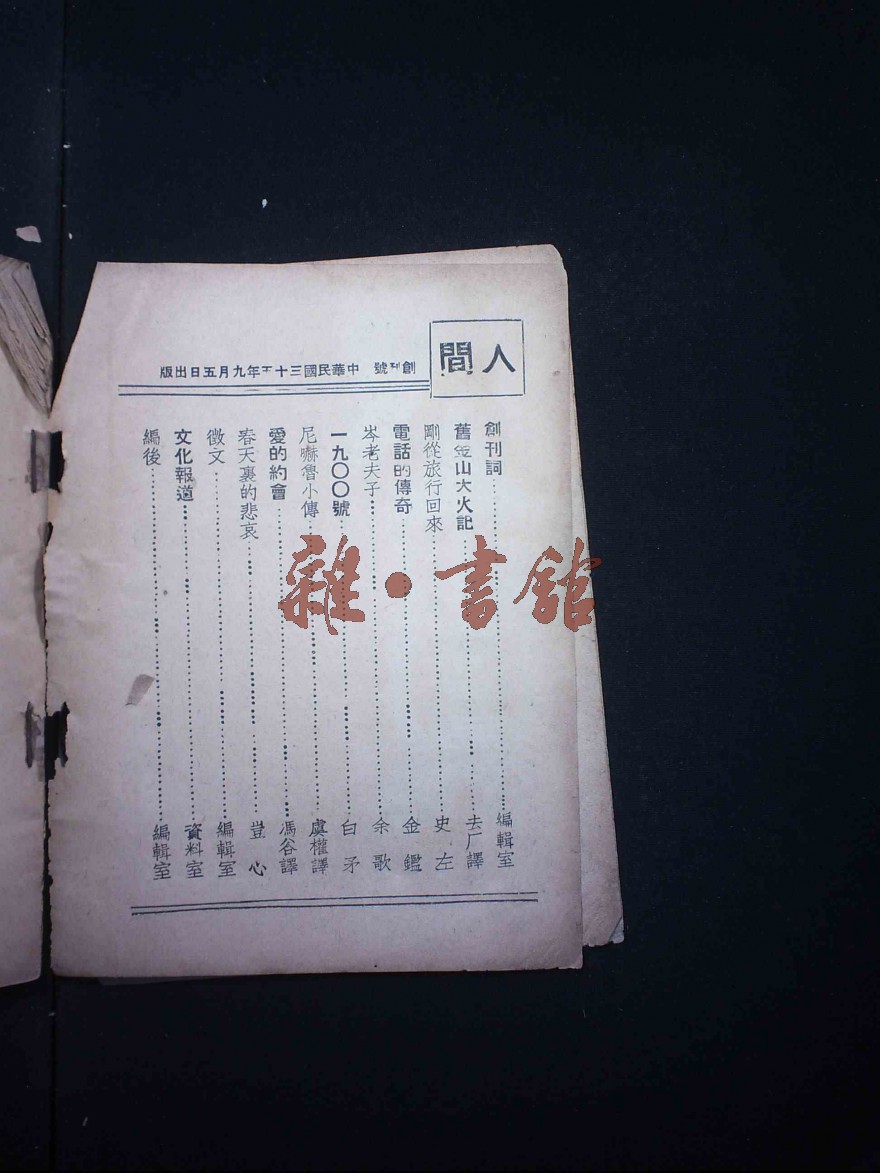 人間
創刊號 中華民國三十五年九月五日出版
創刊詞……編輯室
舊金山大火記……去厂譯
剛從旅行回來……史左
電話的傳奇……金鑑
岑老夫子……余歌
一九〇〇號……白矛
尼嚇魯小傳……虞權譯
愛的約會……馮谷譯
春天裏的悲哀……豈心
徵文……編輯室
文化報道……資料室
編後……編輯室
雜·書館